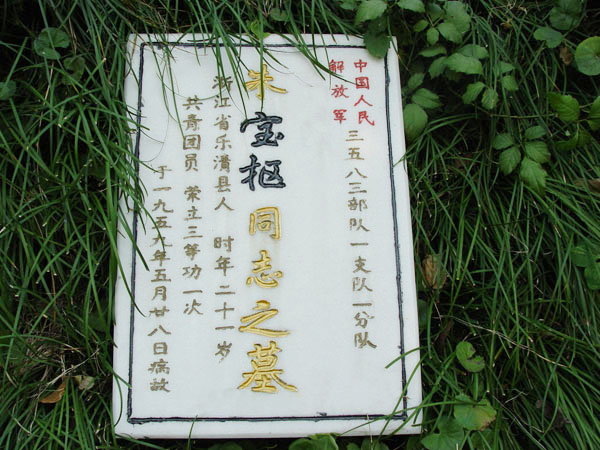 中国人民
解放军
三五八三部队一支队一分队
朱宝枢同志之墓
浙江省乐清县人 时年二十一岁
共青团员 荣立三等功一次
于一九五九年五月廿八日病故